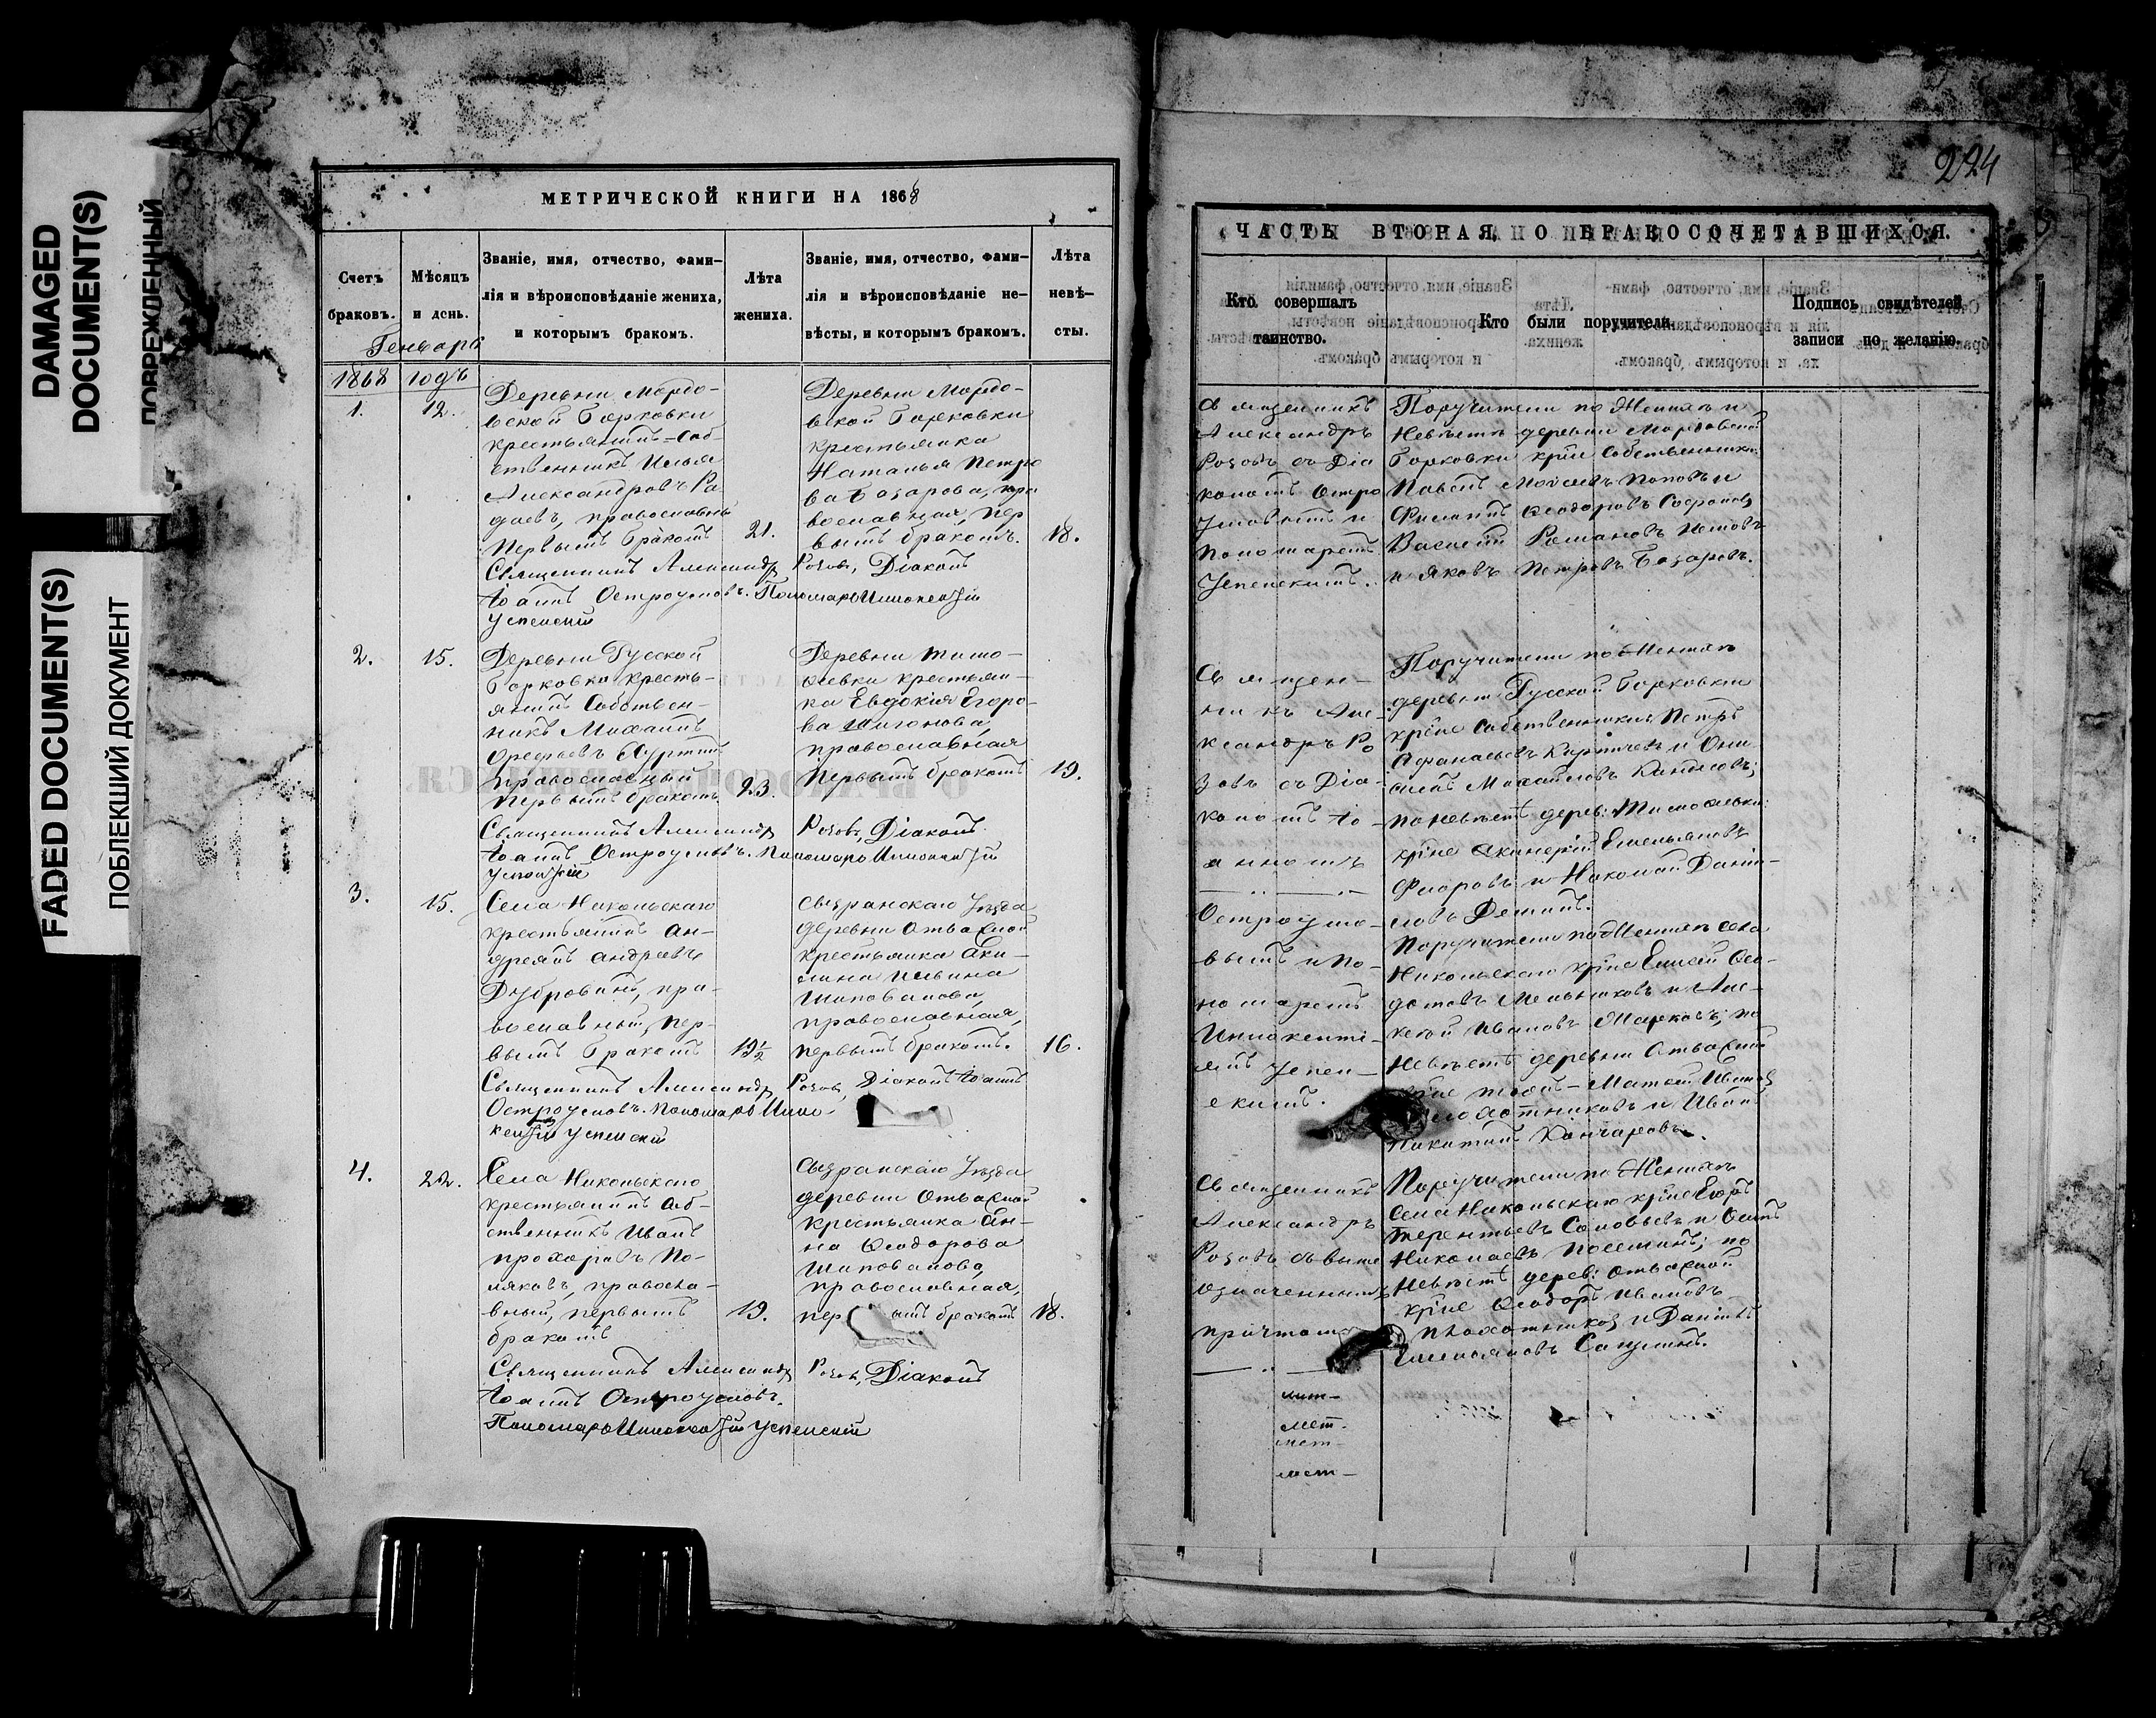 DAMAGED
DOCUMENT(S)
ПОВРЕЖДЕННЫЙ
FADED DOCUMENT(S)
ПОБЛЕКШИЙ ДОКУМЕНТ
МЕТРИЧЕСКОЙ КНИГИ НА 1868
Счетъ
браковъ.
Мѣсяцъ
и день.
Званіе, имя, отчество, фами-
лія и вѣроисповѣданіе жениха,
и которымъ бракомъ.
Лѣта
жениха.
Званіе, имя, отчество, фами-
лія и вѣроисповѣданіе не-
вѣсты, и которымъ бракомъ.
Лѣта
невѣ-
сты.
Генварь
1868 годъ
1.
12.
Деревни Мордо-
вской Борковки
крестьянинъ-соб-
ственникъ Илья
Александровъ Ра
даевъ, православны
Первымъ бракомъ
21.
Деревни Мордо-
вской Борковки
крестьянка
Наталья Петро
ва Базарова, пра
вославная, пер
вымъ бракомъ.
18.
Священникъ Александръ Розовъ, Діаконъ
Іоаннъ Остроумовъ. Пономарь Иннокентій
Успенскій
2.
15.
Деревни Русской
Борковки кресть-
янинъ Собствен-
никъ Михаилъ
Православный
Первымъ бракомъ
23.
Деревни Тимо-
феевки крестьян-
ка Евдокія Егоро-
ва
православная
Первымъ бракомъ
19.
Священникъ Александръ Розовъ, Діаконъ
Іоаннъ Остроумовъ. Пономарь Иннокентій
Успенскій
3.
15.
Села Никольскаго
крестьянинъ Ан-
дреянъ Андреевъ
Дубровинъ, пра-
вославный, пер-
вымъ бракомъ
19½
Сызранскаго Уѣзда
деревни Отважной
крестьянка Аку-
лина Ильина
Шаповалова,
православная,
первымъ бракомъ.
16.
Священникъ Александръ Розовъ, Діаконъ Іоаннъ
Остроумовъ. Пономарь Инно-
кентій Успенскій
4.
22.
Села Никольскаго
крестьянинъ соб-
ственникъ Иванъ
Прохоровъ По-
ляковъ, правосла-
вный, первымъ
бракомъ
19.
Сызранскаго Уѣзда
деревни Отважной
крестьянка Ан-
на Ѳеодорова
Шаповалова,
православная,
пер ымъ бракомъ
18.
Священникъ Александръ Розовъ, Діаконъ
Іоаннъ Остроумовъ.
Пономарь Иннокентій Успенскій
224
ЧАСТЬ ВТОРАЯ, О БРАКОСОЧЕТАВШИХСЯ.
Кто совершалъ
таинство.
Кто были поручители.
Подпись свидѣтелей
записи по желанію.
Священникъ
Александръ
Розовъ съ Діа
кономъ Остро
умовымъ и
Пономаремъ
Успенскимъ.
Поручители по Женихѣ и
Невѣстѣ деревни Мордовской
Борковки кр̃не собственники
Павелъ Моисеевъ Поповъ и
Филиппъ Ѳеодоровъ
Василій Романовъ
и Яковъ Петровъ Базаровъ.
Священ-
никъ Але-
ксандръ Ро
зовъ съ Діа-
кономъ Іо-
анномъ
Остроумо-
вымъ и По-
номаремъ
Иннокенті-
емъ Успен-
скимъ.
Поручители по Женихѣ
деревни Русской Борковки
кр̃не собственники Петръ
Аѳанасьевъ Кирпичевъ и
Михайловъ
по невѣстѣ дерев: Тимофеевки
кр̃не Емельяновъ
Фроловъ и Николай Дани-
ловъ Деминъ.
Поручители по Женихѣ села
Никольскаго кр̃не Елисей Ѳео-
дотовъ Мельниковъ и Але-
ксѣй Ивановъ Марковъ; по
Невѣстѣ деревни Отважной
кр̃не
и Иванъ
Никитинъ Кончаровъ.
Священникъ
Александръ
Розовъ съ выше
означеннымъ
причтомъ
Поручители по Женихѣ
села Никольскаго кр̃не Егоръ
Терентьевъ Соловьевъ и Осипъ
Николаевъ по
Невѣстѣ дерев: Отважной
кр̃не Ѳеодоръ Ивановъ
и Даніилъ
Емельяновъ